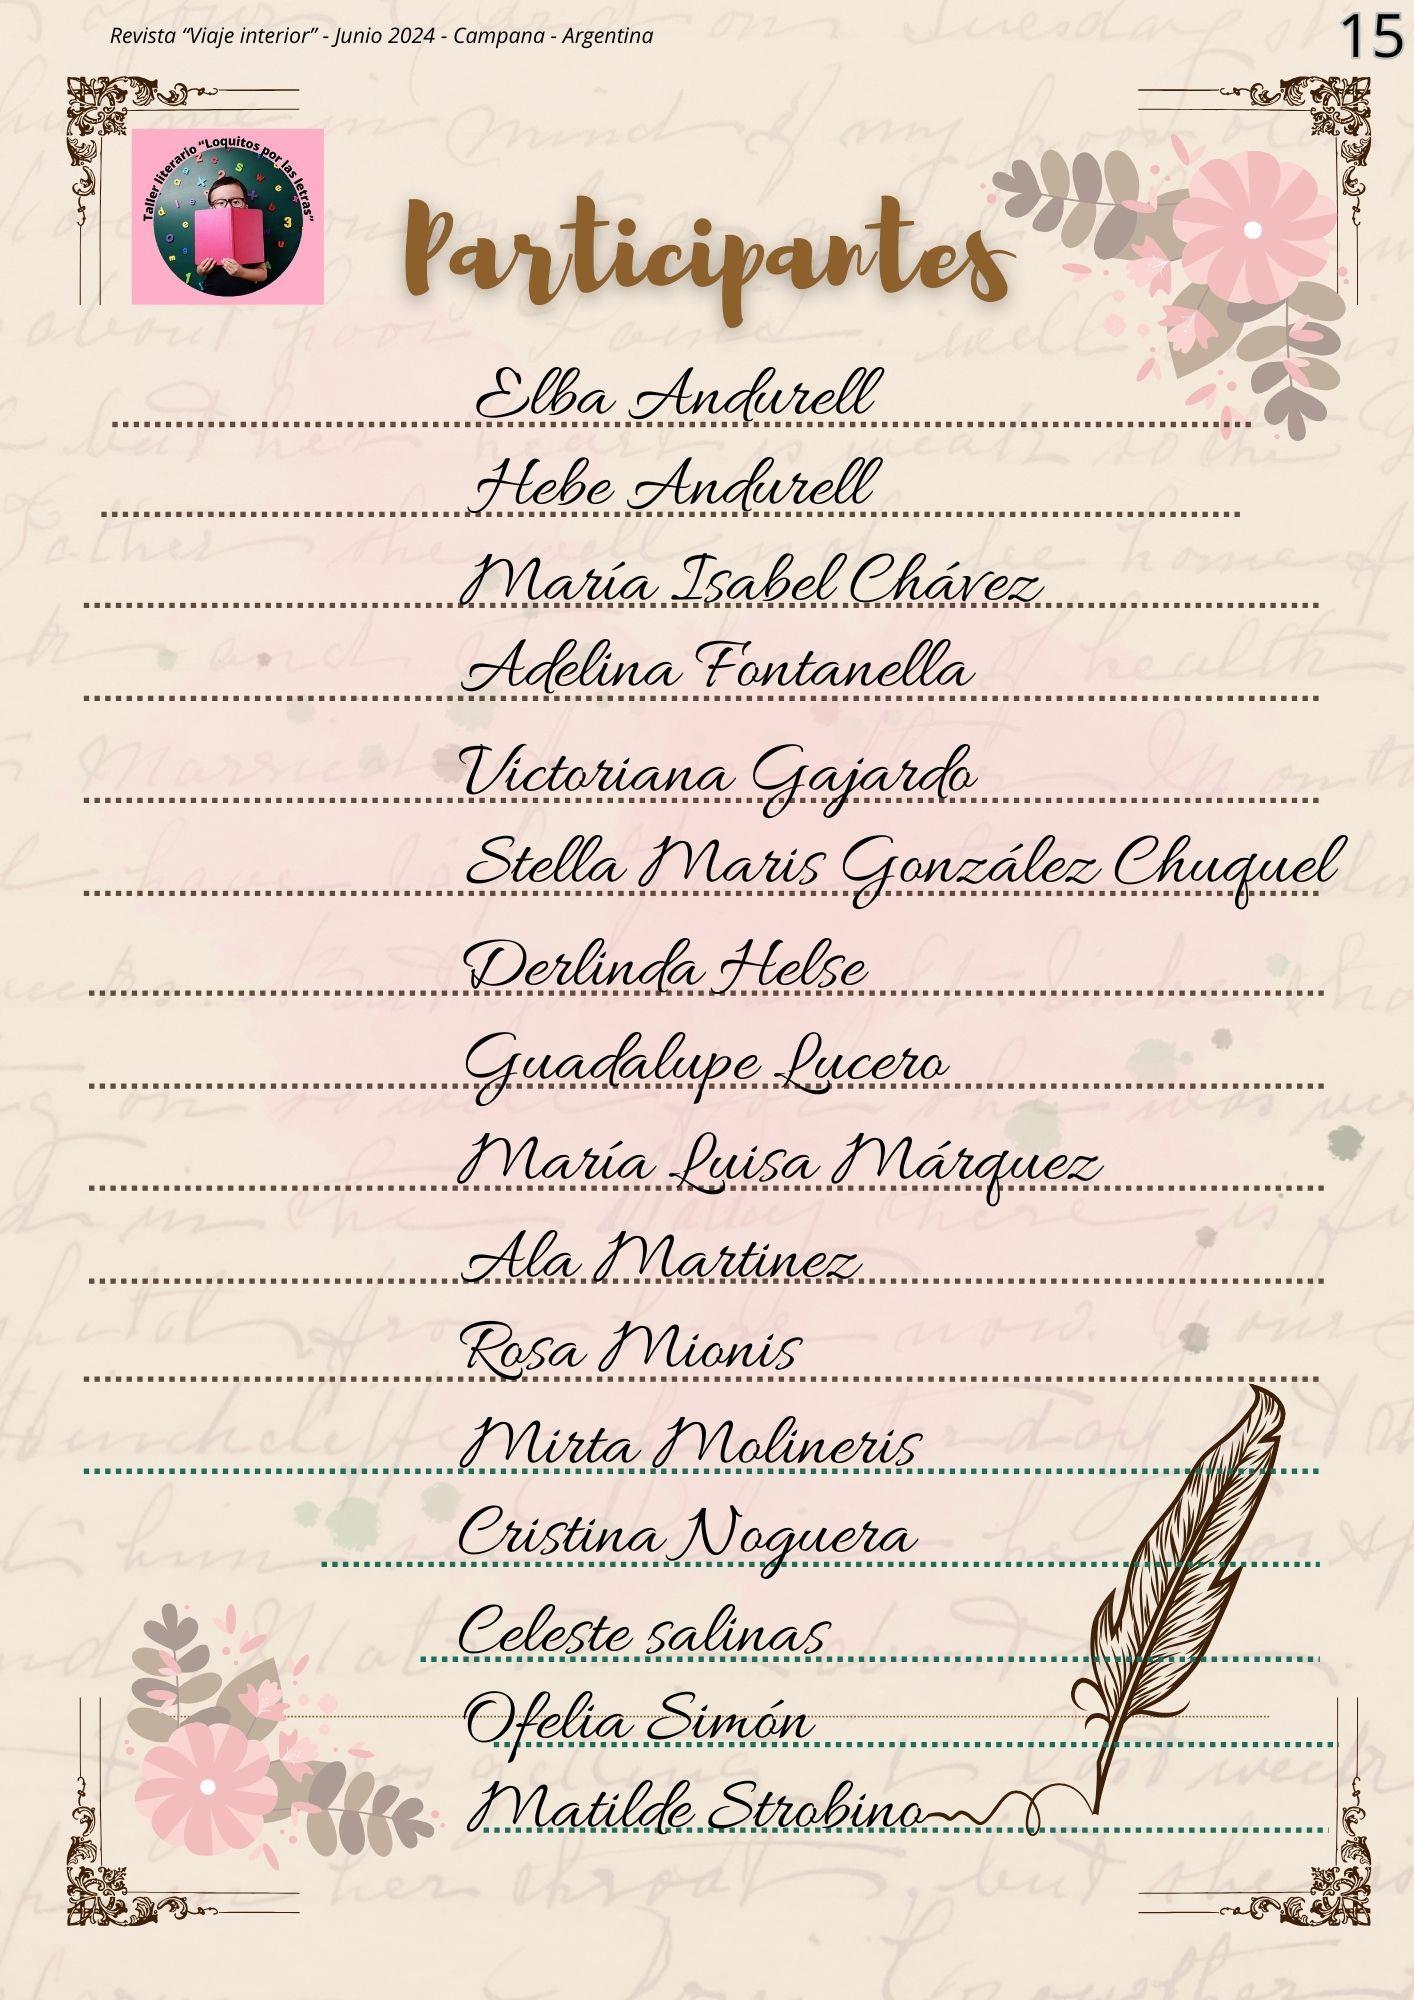 Revista “Viaje interior” - Junio 2024 - Campana - Argentina
15
Taller literario “Loquitos por las letras”
Participantes
Elba Andurell
Hebe Andurell
María Isabel Chávez
Adelina Fontanella
Victoriana Gajardo
Stella Maris González Chuquel
Derlinda Helse
Guadalupe Lucero
María Luisa Márquez
Ala Martinez
Rosa Mionis
Mirta Molineris
Cristina Noguera
Celeste salinas
Ofelia Simón
Matilde Strobino